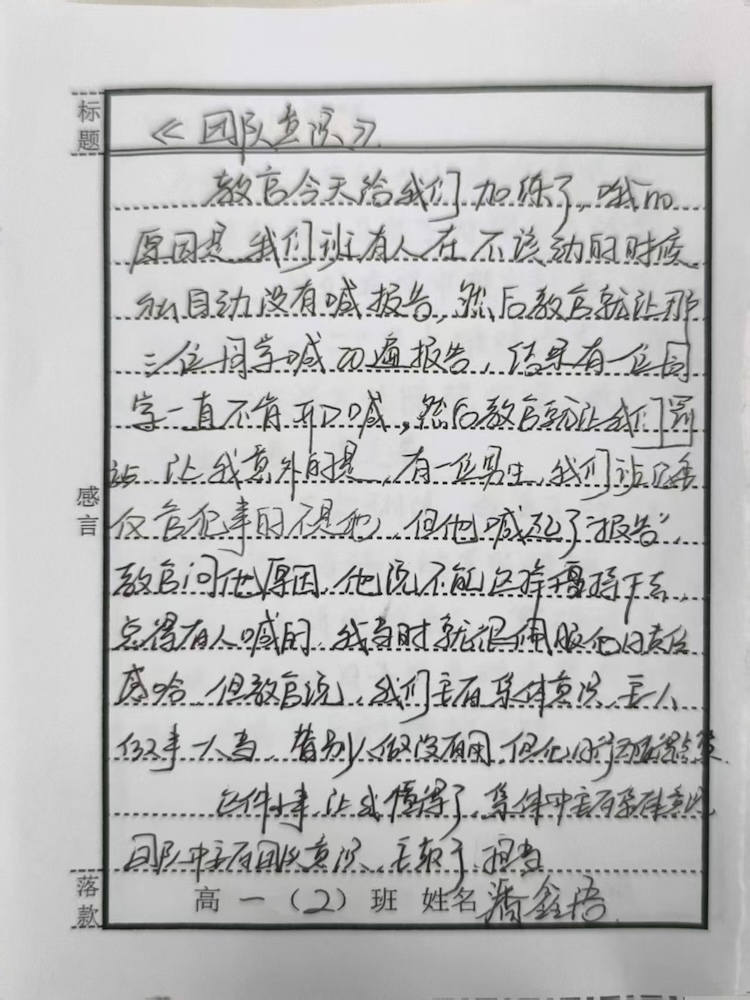 标题
《团队意识》
教官今天给我们加练了,哦加
原因是我们班有人在不该动的时候
自动没有喊报告,然后教官就让那
三位同学喊 遍报告,结果有一位同
学一直不肯开口喊,然后教官就让我们罚
站,让我意外的是,有一位男生,我们站
犯事的不是他,但他喊了"报告",
教官问他原因,他说不能这样 持下去,
总得有人喊的,我当时就很佩服他的责任
感哈,但教官说,我们要有集体意识,
事一人当,替别人做没有用,但他的
这件小事,让我懂得了,集体中要有集体意识
团队中要有团队意识, 担当
感言
落款
高一(2)班 姓名 潘鑫